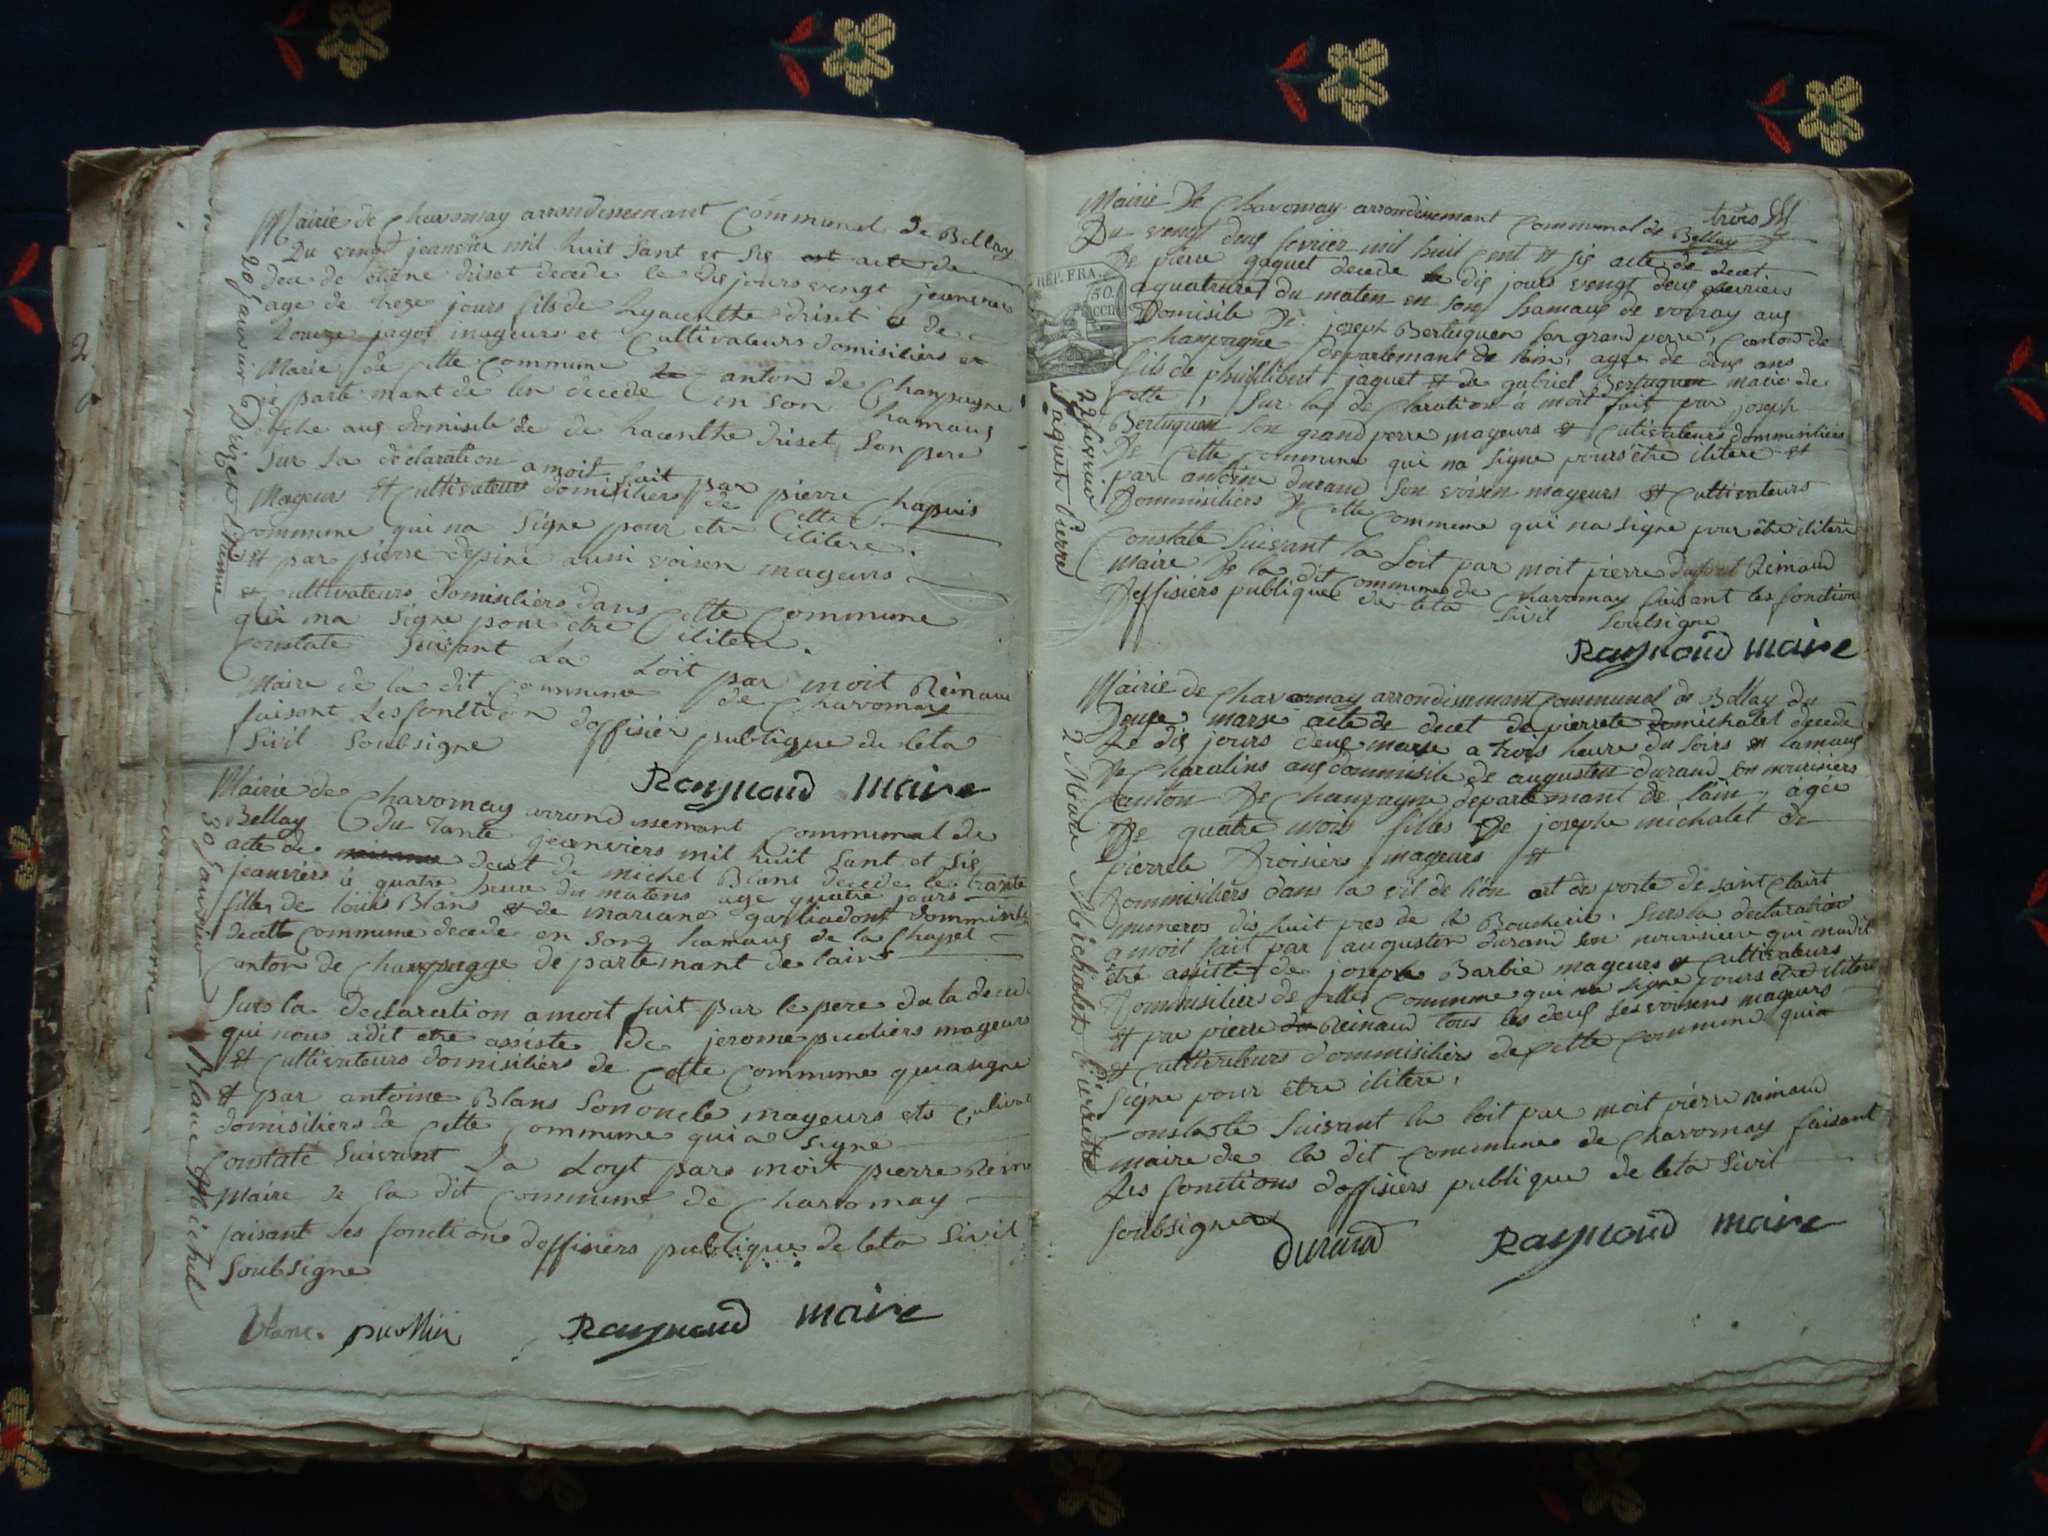 Mairie de Chavornay arrondissemant Communal de Bellay
Du vengt jeanvier mil huit sant et sis acte de
age de treze jours fils de hyacenthe driset et de
Louize jagot mageurs et Cultivateurs domisiliers
Mairie de cette Commune Canton de Champagne
de parte mant de lin décédé en son hamaus
aus domisile de de hacenthe driset son pere
Sur la déclaration a moit fait par pierre Chapuis
Mageurs et Cultivateurs domisiliers de Cette
Commune qui na Signe pour etre ilitere
et par pierre depine ausi voisen mageurs
et Cultivateurs domisiliers dans Cette Commune
qui na Signe pour etre ilitere.
Constate Suivant La Loit par moit Reinaud
Maire de la dit Commune de Charvornay
faisant Les fonction doffisier publique de leta
Sivil Soubsigne
Raynaud maire
20 Janvier Drizet Etienne
Mairie de Charvornay arrondissemant Communal de
Bellay du Tante jeanviers mil huit Sant et Sis
acte de decet de michel Blans decede le trante
jeanviers à quatre heure du matens age quatre jours
filles de louis Blans et de mariane
de cette Commune decede en son hamaus de la Chapel
Canton de Champagne de partemant de lain
Sur la declaration a moit fait par le pere de la
qui nous adit etre assiste de jerome mageurs
et Cultivateurs domisiliers de Cette Commune qui a signe
et par antoine Blans Son oncle mageurs et
domisiliers de Cette Commune qui a Signe
Constate Suivant La Loyt pars moit pierre
Maire de la dit Commune de Charvornay
faisant les fonction doffisiers publique de leta Sivil
Soubsigne
Blanc
Raynaud maire
30 Janvier Blanc Michel
trois
Mairie De Chavornay arrondisemant Communal de Bellay
Du vengt deus fevrier mil huil cent et sis acte de decet
De pierre jaquet decede le dis jours vengt deus fevriers
a quatreure du maten en son hamaus de vovray aus
Domisile De joseph Bertuquen son grand perre, Canton de
Champagne departemant de lain, agée de deus ans
fils de philibert jaquet et de gabriel Bertuquen Mairie de
Cette, Sur la de Claration a moit fait par joseph
Bertuquen Son grand perre mageurs et Cutivateurs domminiliers
De Cette Commune qui na Signe pours être ilitere et
par antoin durand Son voisen mageurs et Cultivateurs
Dommisiliers de Cette Commune qui na signe pour être ilitere
Constate Suivant la Loit par moit pierre Reinaud
Maire De la dit Commune de Charvornay faisant les fonction
doffisiers publique de leta Sivil Soubsigne
Raynaud maire
RÉP. FRA.
50.
cen
22 fevrier Jaquet Pierre
Mairie de Chavornay arrondisemant Communal de Bellay du
Deuse marse acte de decet de pierrete michalet decede
Le dis jours deus marse a trois heure du Soirs et lamaus
De Charalins aus dommisile de augusten durand son nourisiers
Canton De Champagne departemant de lain, agée
De quatre mois filles De josephe michalet de
pierrete Droisiers mageurs et
dommisiliers dans la vil de lion de porte de saint Clairt
numeros dis huit pres de la Boucherie. Surs la declaration
a moit fait par augusten durand son nourisiere qui madit
être assitte de joseph Barbie mageurs et Cultivateurs
Dommisilier de Cette Commune qui na Signe pours être ilitere
et par pierre Reinaud tous les deus Ses voisens mageurs
et Cultivateurs dommisiliers de Cette Commune qui a
Signe pour etre ilitere,
Constate Suivant la loit par moit pierre reinaud
maire de la dit Commune de Charvornay faisant
Les fonctions doffisiers publique de leta Sivil
Soubsigne
Durand
Raynaud maire
2 Mars Michalet Pierrette